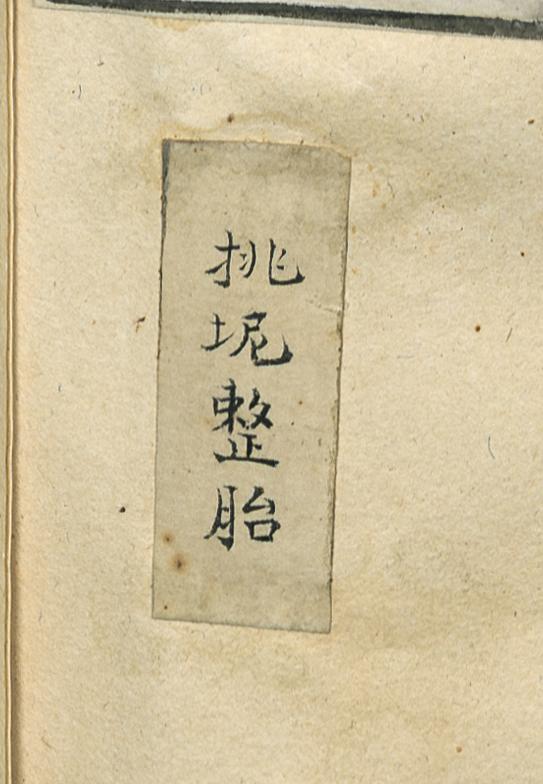 挑坭整胎